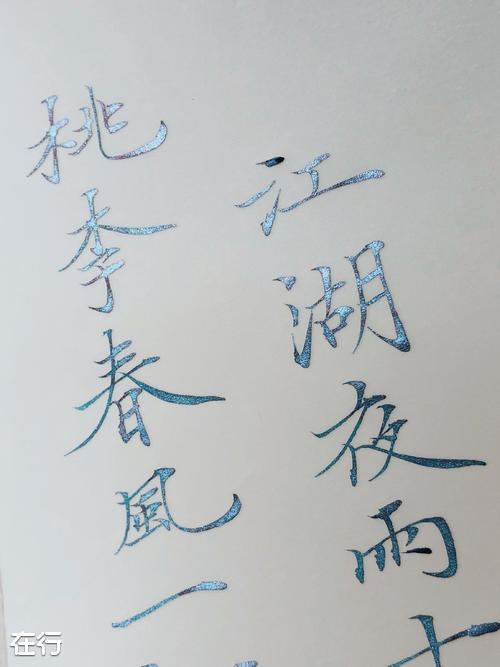 桃李春風一
江湖夜雨十
在行